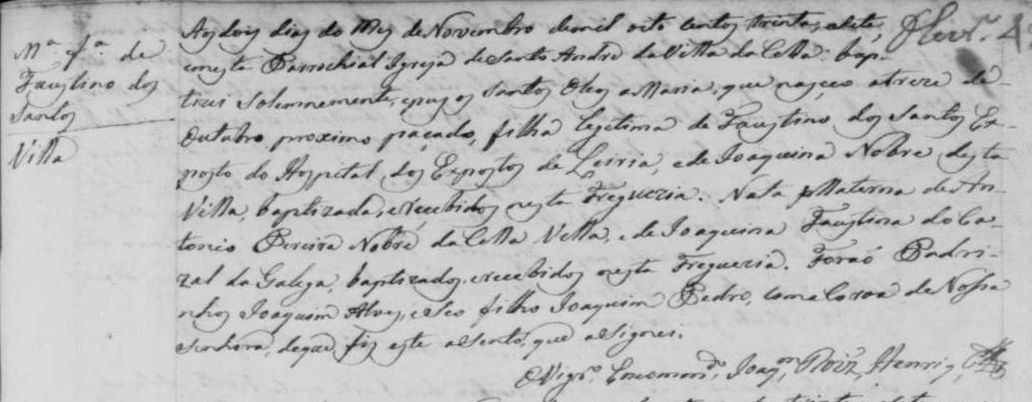 Aos dois dias do Mes de Novembro de mil oito centos trinta, e sete,
nesta Parrochial Igreja de Santo André da Villa da Cella: bap-
tizei solemnemente, e puz os Santos Oleos a Maria, que nasceo a treze de
Outubro proximo paçado, filha legitima de Faustino dos Santos Ex-
posto do Hospital dos Expostos de Leiria, e de Joaquina Nobre desta
Villa, baptizada, e recebidos nesta Freguezia. Nata pª Materna de An-
tonio Pereira Nobre da Cella Velha, e de Joaquina Faustina do Ca-
zal da Galega, baptizados, e recebidos nesta Freguezia. Foraõ Padri-
nhos Joaquim Alves, e Seo filho Joaquim Pedro, com a Coroa de Nossa
Senhora, de que fiz este aSento, que aSignei.
O Vigrº Encomendº Joaqm Roiz Henriq
Mª fª de
Faustino dos
Santos
Villa